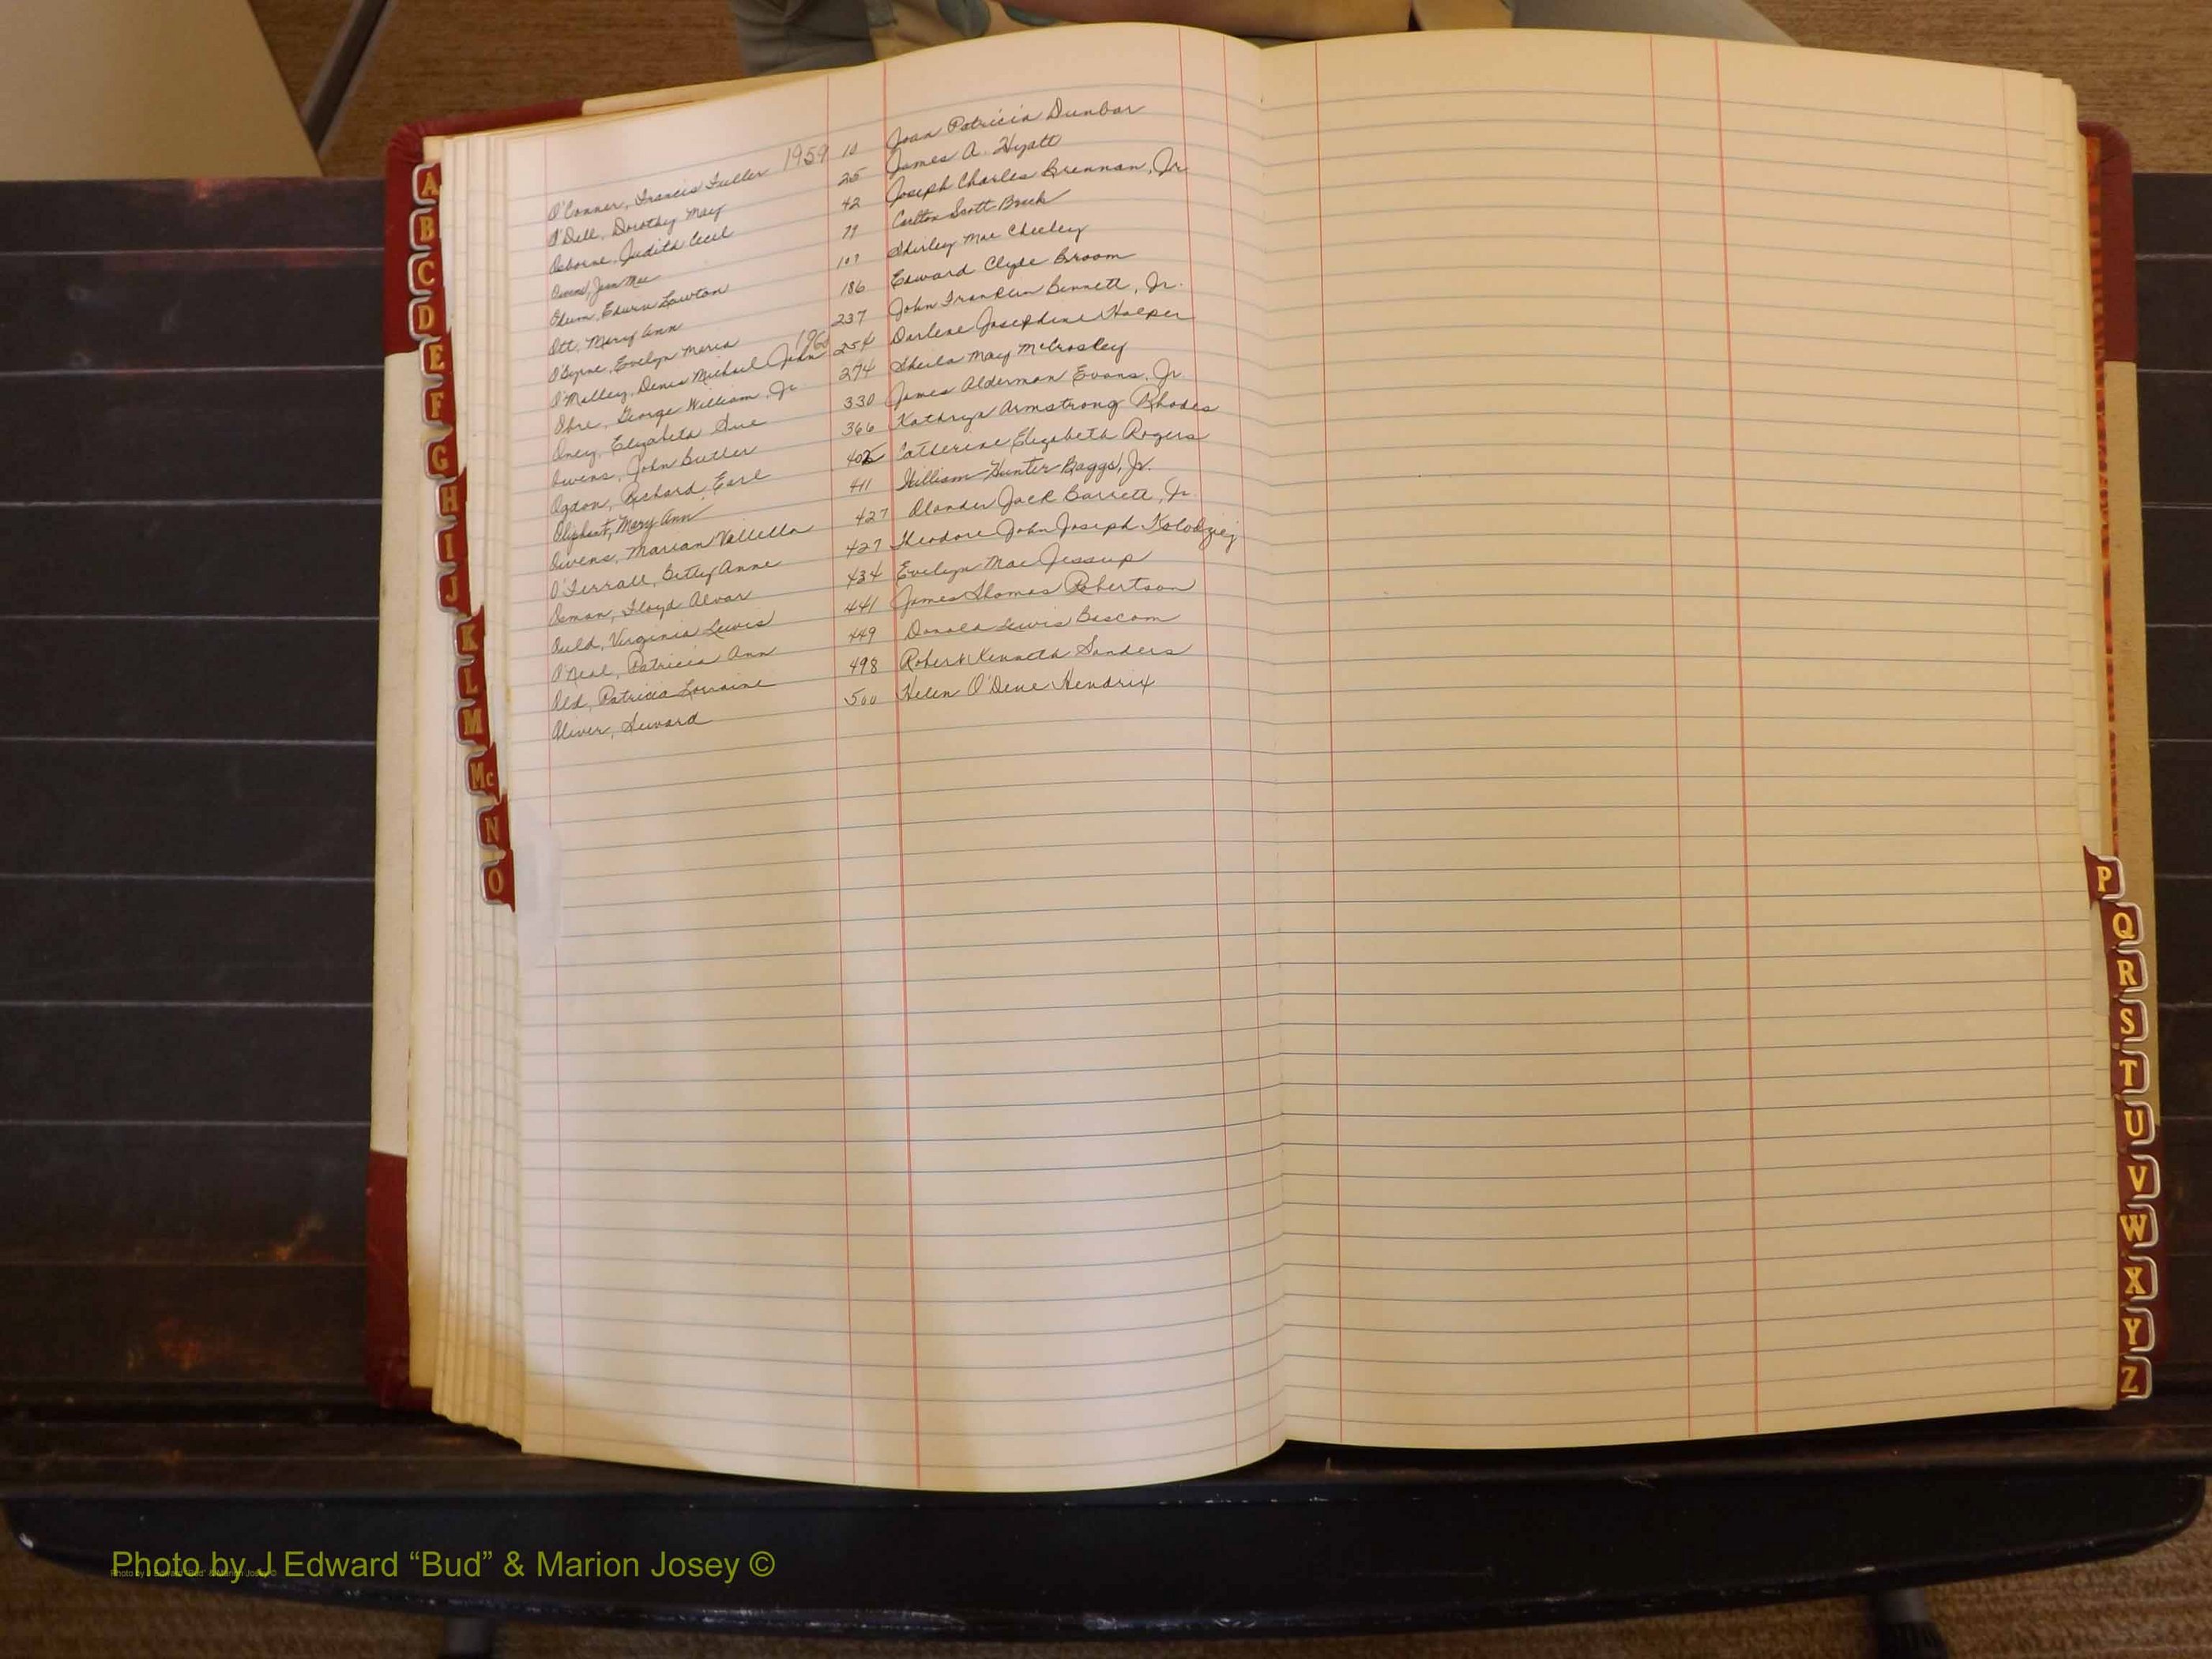 O'Conner, Francis Fuller 1959 10 Joan Patricia Dunbar
O'Dell, Dorothy May 25 James A. Hyatt
Osborne, Judith Cecil 42 Joseph Charles Brennan, Jr.
Owens, Jean Mae 79 Carlton Scott
Odum, Edwin Lawton 107 Shirley Mae Cheeley
Ott, Mary Ann 186 Edward Clyde Broom
O'Byrne, Evelyn Maria 237 John Franklin Bennett, Jr.
O'Malley, Denis Michael John 1960 254 Darlene Josephine Harper
George William, Jr 274 Sheila May McCroskey
Oney, Elizabeth Sue 330 James Alderman Evans, Jr.
Owens, John Butler 366 Kathryn Armstrong Rhodes
Ogdon, Richard Earl 405 Catherine Elizabeth Rogers
Oliphant, Mary Ann 411 William Hunter Baggs, Jr.
Owens, Marian Vallella 427 Alander Jack Barrett, Jr.
O'Ferrall, Betty Anne 427 Theodore John Joseph Kolodziej
Osman, Floyd Alvar 434 Evelyn Mae Jessup
Auld, Virginia Lewis 441 James Thomas Robertson
O'Neal, Patricia Ann 449 Donald Lewis Bascom
Old, Patricia Lorraine 498 Robert Kenneth Sanders
Oliver, Seward 500 Helen O'Dene Hendrix
A
B
C
D
E
F
G
H
I
J
K
L
M
Mc
N
O
P
Q
R
S
T
U
V
W
X
Y
Z
Photo by J Edward “Bud” & Marion Josey ©
Photo by J Edward “Bud” & Marion Josey ©